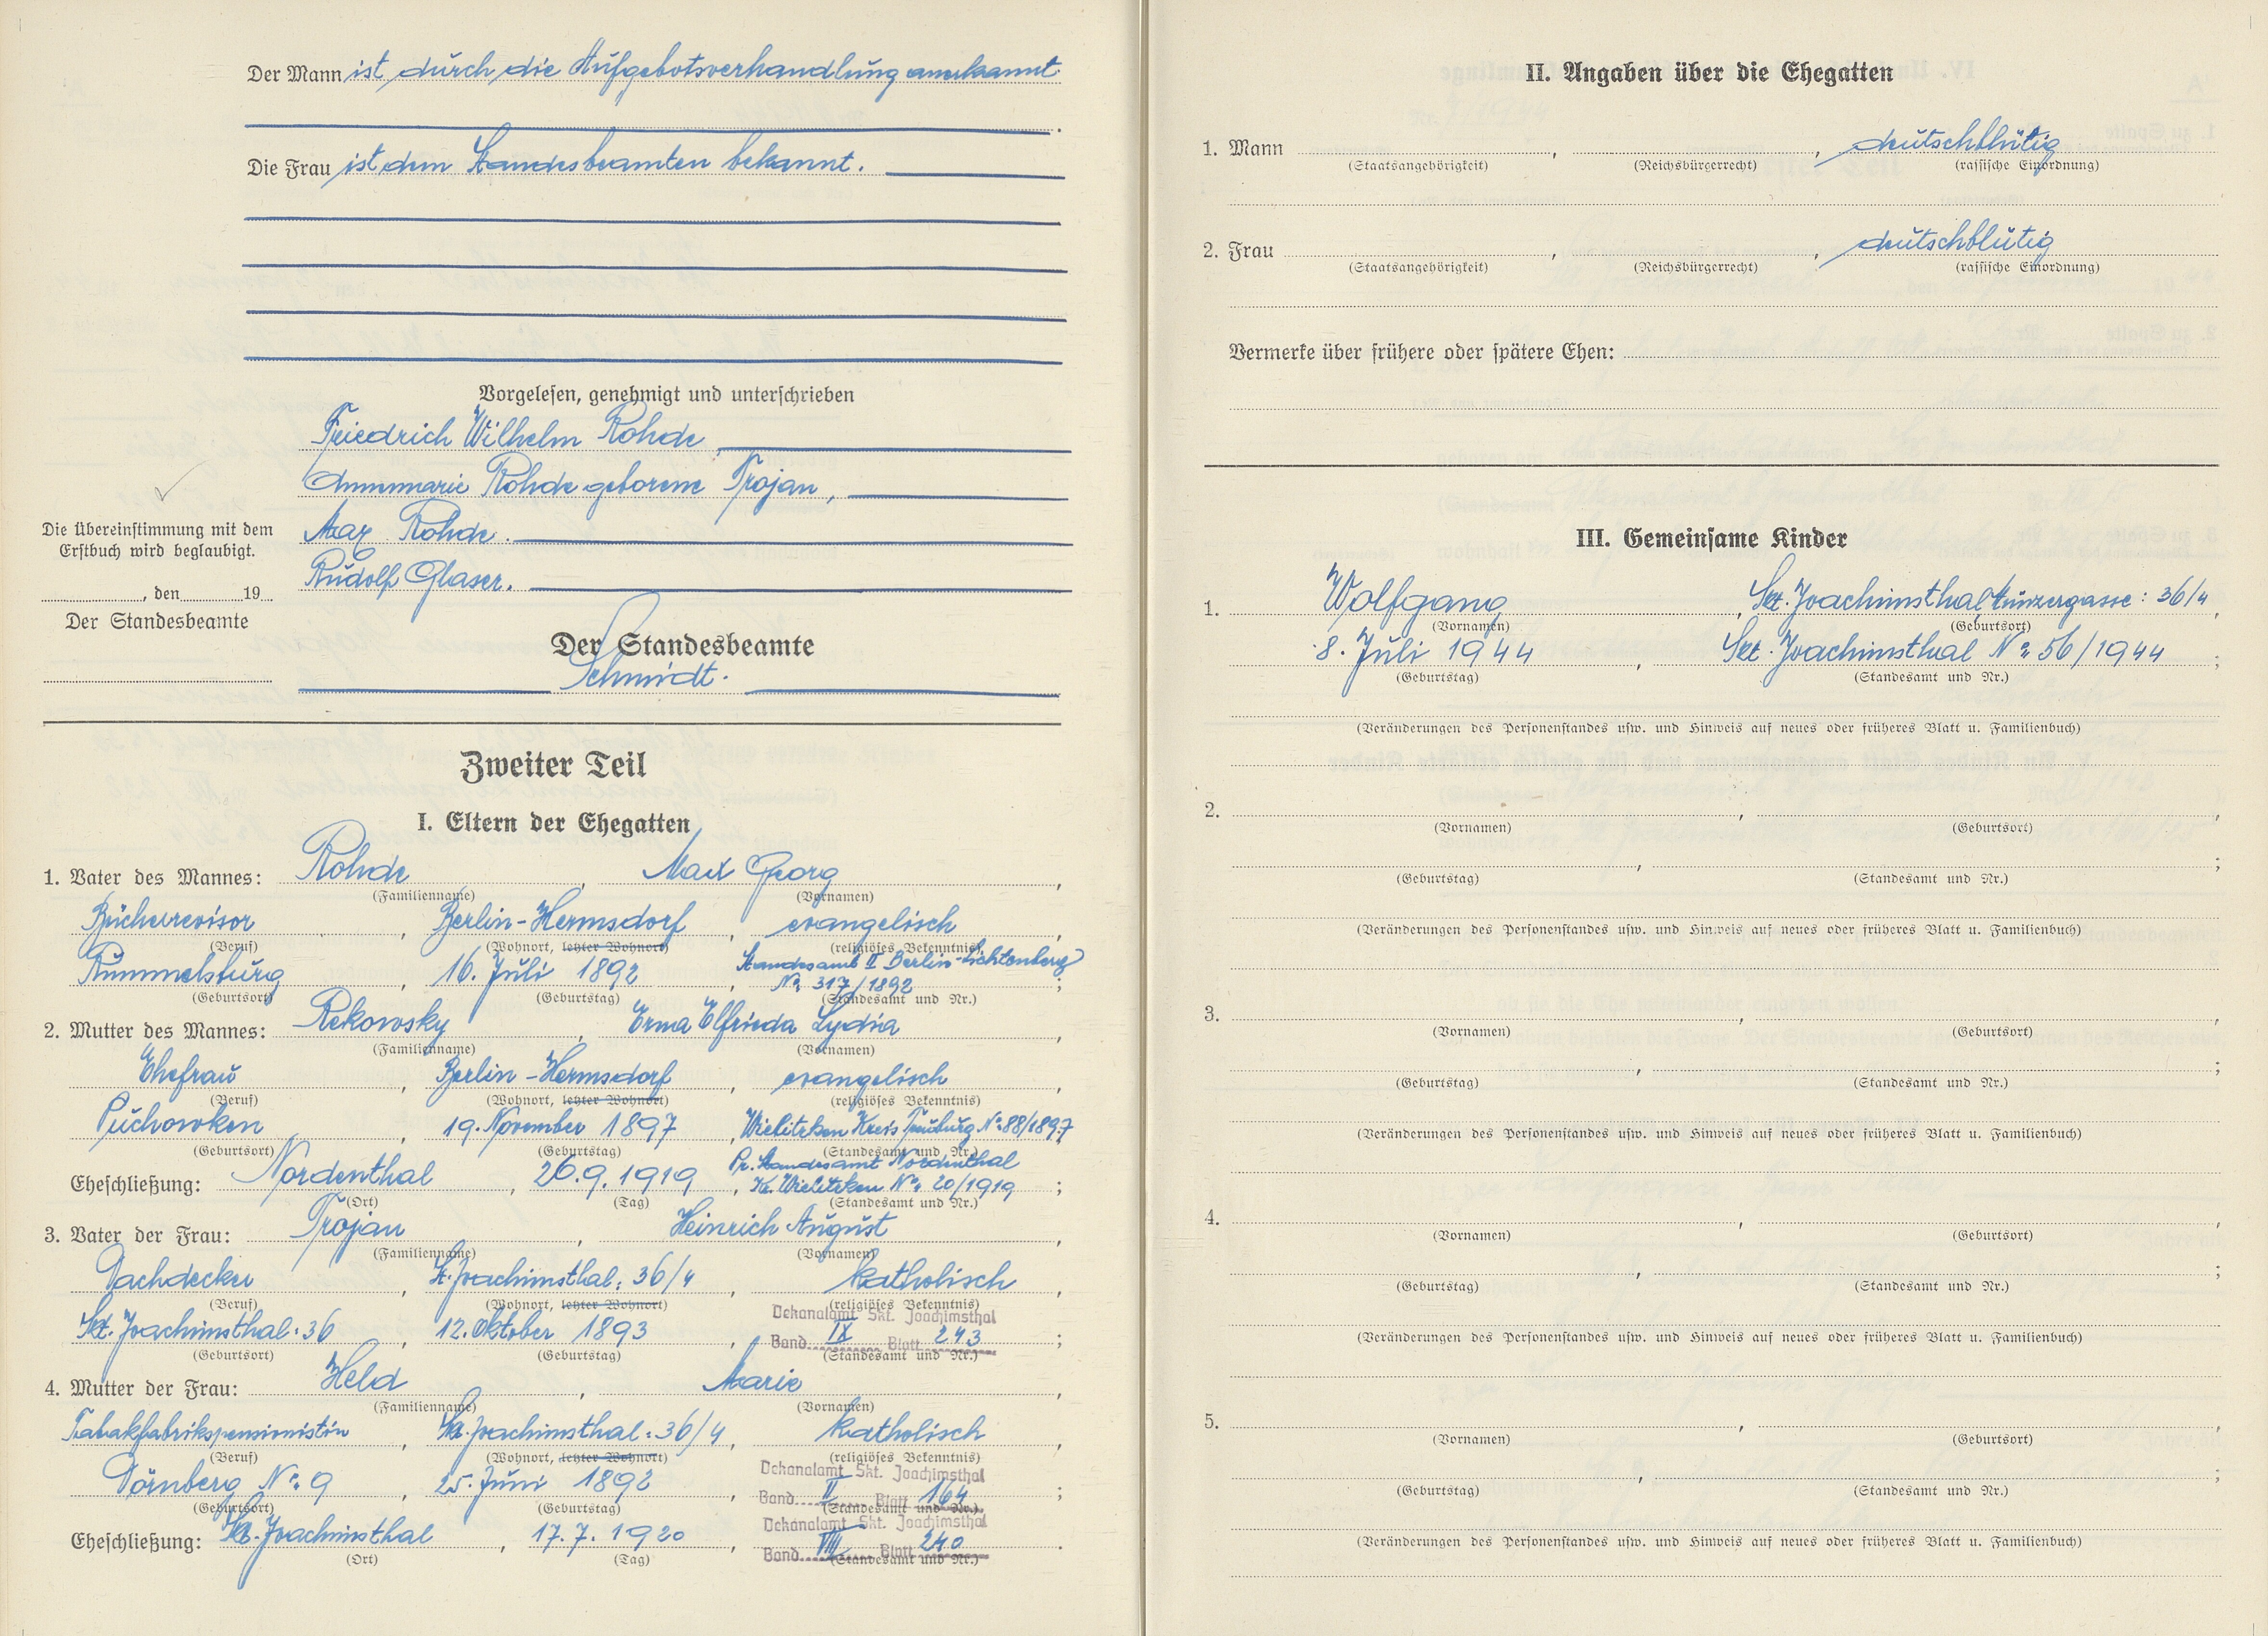 Der Mann ist durch die Aufgebotsverhandlung anerkannt.
Die Frau ist dem Standesbeamten bekannt.
Vorgelesen, genehmigt und unterschrieben
Friedrich Wilhelm Rohde,
Annemarie Rohde geborene Trojan,
Max Rohde.
Rudolf Glaser.
Die Übereinstimmung mit dem
Erstbuch wird beglaubigt.
, den 19
Der Standesbeamte
Der Standesbeamte
Schmidt.
Zweiter Teil
I. Eltern der Ehegatten
1. Vater des Mannes: Rohde, Max Georg,
(Familienname) (Vornamen)
Bücherrevisor, Berlin-Hermsdorf, evangelisch,
(Beruf) (Wohnort, letzter Wohnort) (religiöses Bekenntnis)
Rummelsburg, 16. Juli 1892, Standesamt II Berlin-Lichtenberg
No. 317/1892;
(Geburtsort) (Geburtstag) (Standesamt und Nr.)
2. Mutter des Mannes: Rekowsky, Erma Elfrieda Lydia,
(Familienname) (Vornamen)
Ehefrau, Berlin-Hermsdorf, evangelisch,
(Beruf) (Wohnort, letzter Wohnort) (religiöses Bekenntnis)
Puchowken, 19. November 1897, Wielitzken Kreis Treuburg No 88/1897
(Geburtsort) (Geburtstag) (Standesamt und Nr.)
Eheschließung: Nordenthal, 26.9.1919, Pr. Standesamt Nordenthal
Kr. Wielitzken No. 20/1919;
(Ort) (Tag) (Standesamt und Nr.)
3. Vater der Frau: Trojan, Heinrich August,
(Familienname) (Vornamen)
Dachdecker, St. Joachimsthal: 36/4, katholisch,
(Beruf) (Wohnort, letzter Wohnort) (religiöses Bekenntnis)
Skt. Joachimsthal: 36, 12. Oktober 1893, Dekanalamt Skt. Joachimsthal
Band IX Blatt 243;
(Geburtsort) (Geburtstag) (Standesamt und Nr.)
4. Mutter der Frau: Held, Marie,
(Familienname) (Vornamen)
Tabakfabrikspensionistin, Skt. Joachimsthal: 36/4, katholisch,
(Beruf) (Wohnort, letzter Wohnort) (religiöses Bekenntnis)
Dörnberg No. 9, 25. Juni 1892, Dekanalamt Skt. Joachimsthal
Band II Blatt 164;
(Geburtsort) (Geburtstag) (Standesamt und Nr.)
Eheschließung: Skt. Joachimsthal, 17.7.1920, Dekanalamt Skt. Joachimsthal
Band VIII Blatt 240.
(Ort) (Tag) (Standesamt und Nr.)
II. Angaben über die Ehegatten
1. Mann , , deutschblütig
(Staatsangehörigkeit) (Reichsbürgerrecht) (rassische Einordnung)
2. Frau , , deutschblütig
(Staatsangehörigkeit) (Reichsbürgerrecht) (rassische Einordnung)
Vermerke über frühere oder spätere Ehen:
III. Gemeinsame Kinder
1. Wolfgang, Skt. Joachimsthal, Münzergasse: 36/4,
(Vornamen) (Geburtsort)
8. Juli 1944, Skt. Joachimsthal No. 56/1944;
(Geburtstag) (Standesamt und Nr.)
(Veränderungen des Personenstandes usw. und Hinweis auf neues oder früheres Blatt u. Familienbuch)
2. , ,
(Vornamen) (Geburtsort)
, ;
(Geburtstag) (Standesamt und Nr.)
(Veränderungen des Personenstandes usw. und Hinweis auf neues oder früheres Blatt u. Familienbuch)
3. , ,
(Vornamen) (Geburtsort)
, ;
(Geburtstag) (Standesamt und Nr.)
(Veränderungen des Personenstandes usw. und Hinweis auf neues oder früheres Blatt u. Familienbuch)
4. , ,
(Vornamen) (Geburtsort)
, ;
(Geburtstag) (Standesamt und Nr.)
(Veränderungen des Personenstandes usw. und Hinweis auf neues oder früheres Blatt u. Familienbuch)
5. , ,
(Vornamen) (Geburtsort)
, ;
(Geburtstag) (Standesamt und Nr.)
(Veränderungen des Personenstandes usw. und Hinweis auf neues oder früheres Blatt u. Familienbuch)